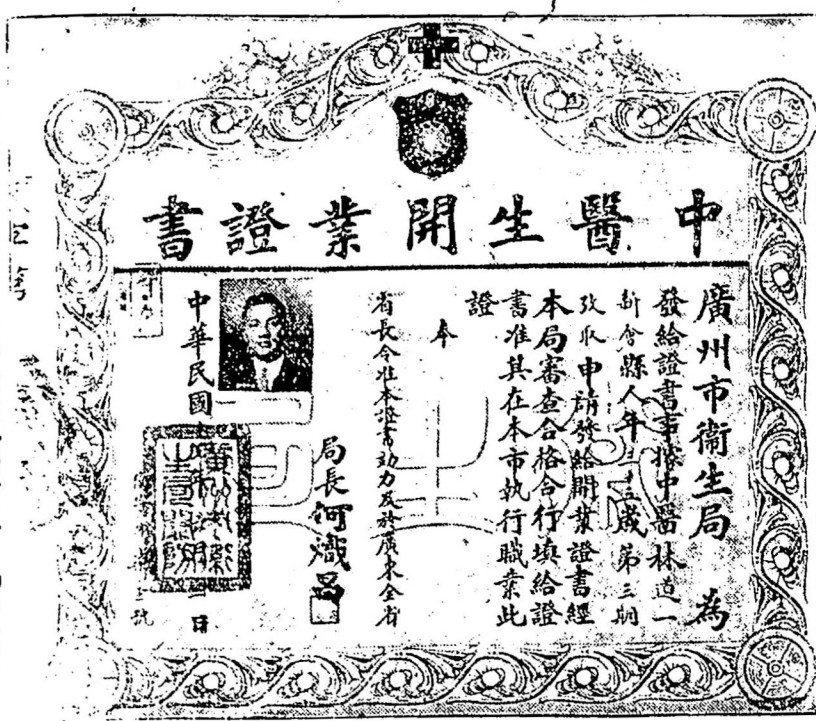 中醫生開業證書
廣州市衞生局 為
發給證書事據中醫林道一
新會縣人年三十三歲第三期
攷取申請發給開業證書經
本局審查合格合行填給證
書准其在本市執行職業此
證
奉
省長令准本證書効力及於廣東全省
局長何熾昌
中華民國
日
號